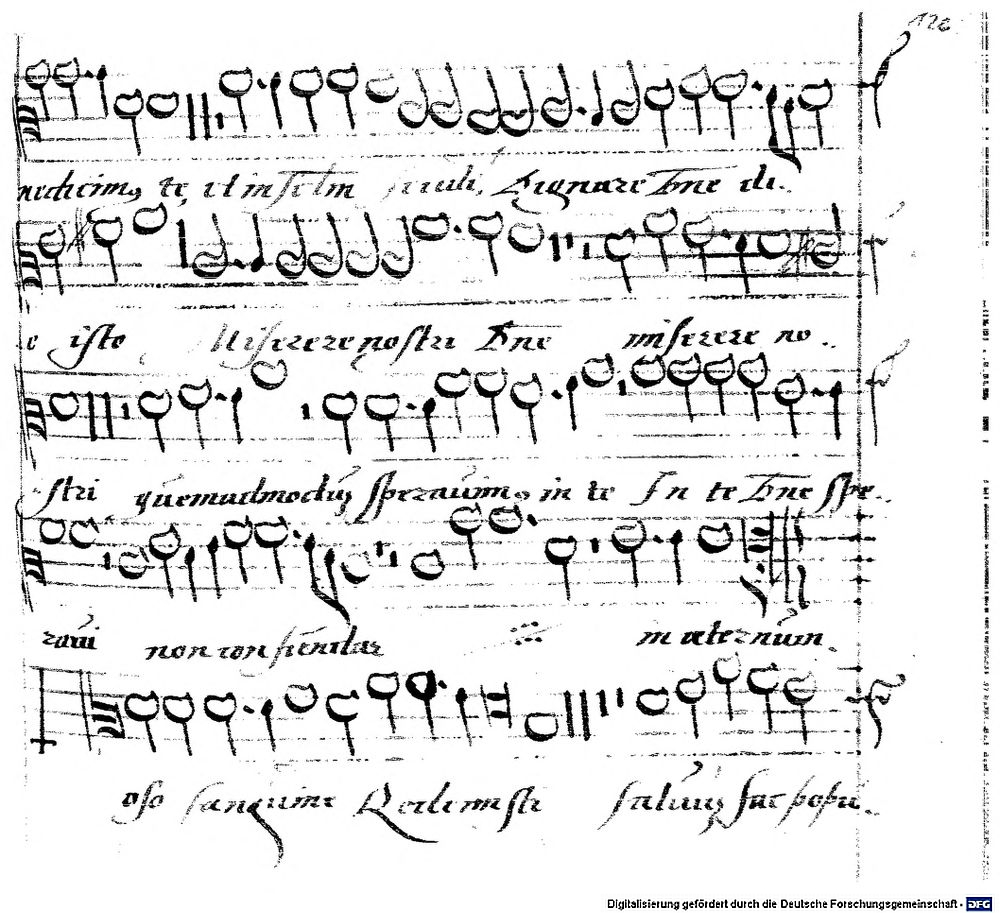 126
nedicimus te, et in seculum seculi, Dignare Dne di..
e isto Miserere nostri Dne miserere no..
stri quemadmodum speravimus in te In te Dne spe..
ravi non confundar in aeternum.
oso sanguine Redemisti salvum fac popu..
Digitalisierung gefördert durch die Deutsche Forschungsgemeinschaft - DFG